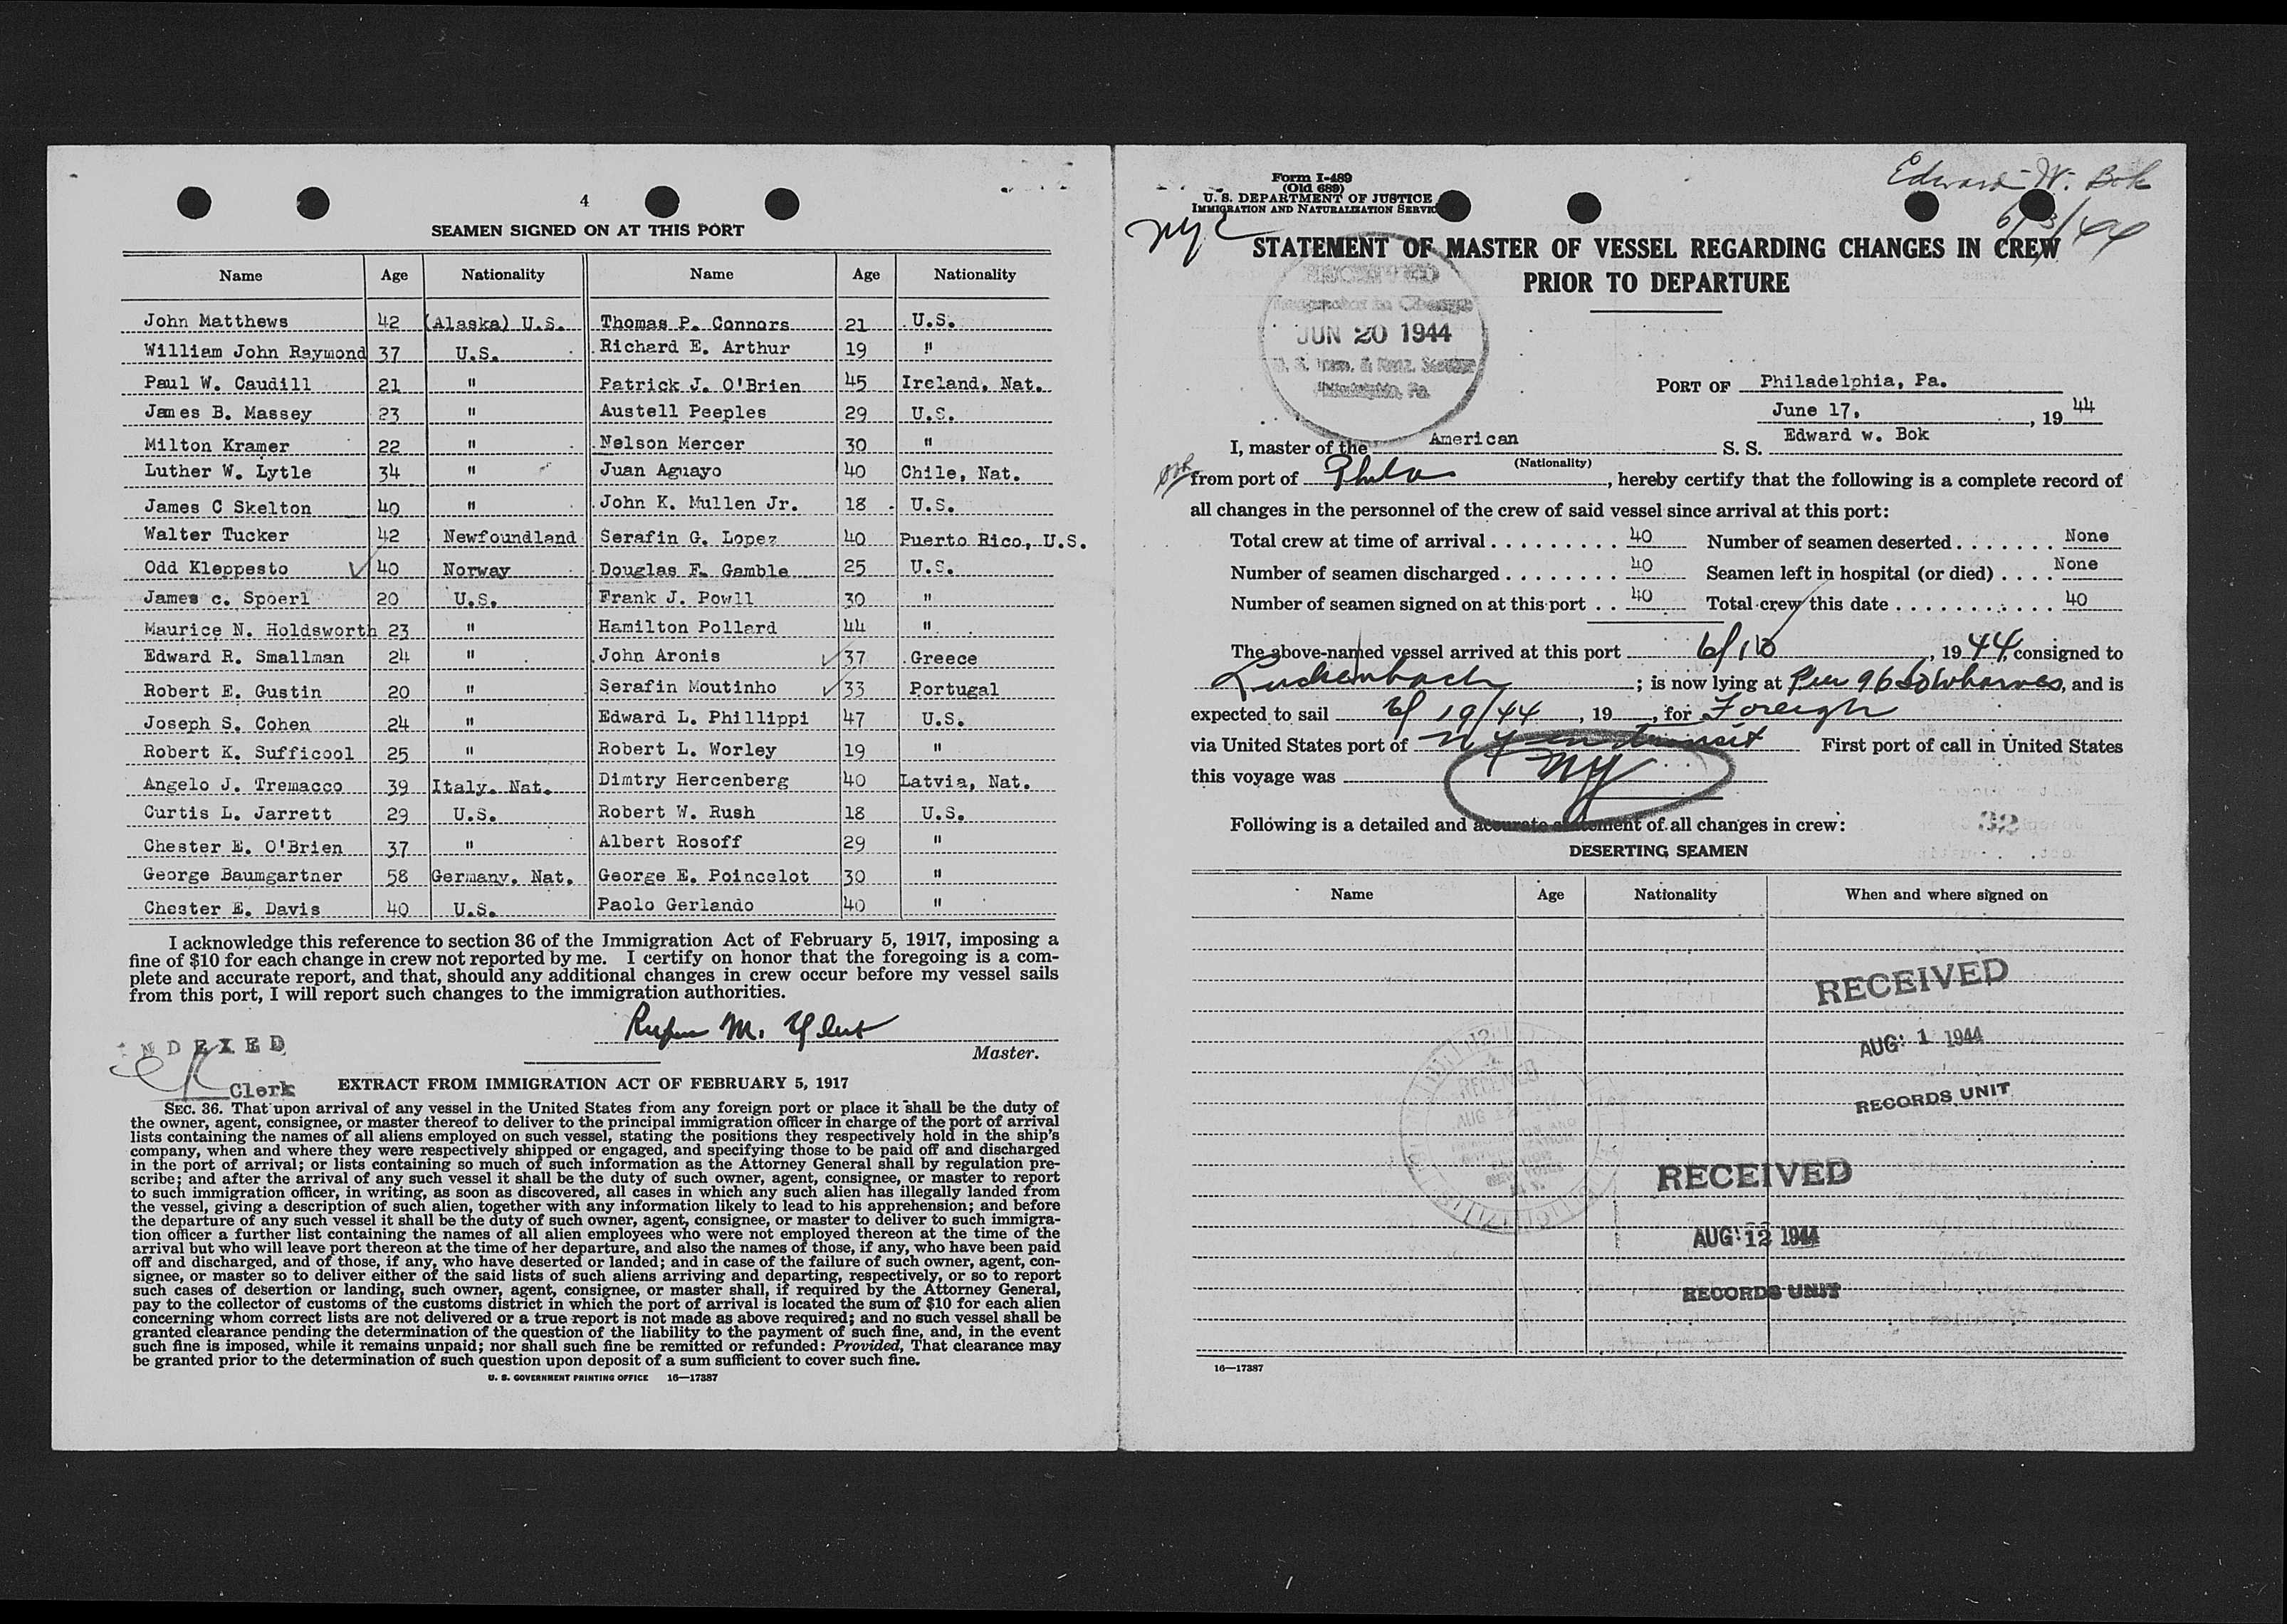 4
SEAMEN SIGNED ON AT THIS PORT
Name Age Nationality Name Age Nationality
John Matthews 42 (Alaska) U.S. Thomas P. Connors 21 U.S.
William John Raymond 37 U.S. Richard E. Arthur 19 "
Paul W. Caudill 21 " Patrick J. O'Brien 45 Ireland, Nat.
James B. Massey 23 " Austell Peeples 29 U.S.
Milton Kramer 22 " Nelson Mercer 30 "
Luther W. Lytle 34 " Juan Aguayo 40 Chile, Nat.
James C Skelton 40 " John K. Mullen Jr. 18 U.S.
Walter Tucker 42 Newfoundland Serafin G. Lopez 40 Puerto Rico, U.S.
Odd Kleppesto 40 Norway Douglas F. Gamble 25 U.S.
James c. Spoerl 20 U.S. Frank J. Powll 30 "
Maurice N. Holdsworth 23 " Hamilton Pollard 44 "
Edward R. Smallman 24 " John Aronis 37 Greece
Robert E. Gustin 20 " Serafin Moutinho 33 Portugal
Joseph S. Cohen 24 " Edward L. Phillippi 47 U.S.
Robert K. Sufficool 25 " Robert L. Worley 19 "
Angelo J. Tremacco 39 Italy. Nat. Dimtry Hercenberg 40 Latvia, Nat.
Curtis L. Jarrett 29 U.S. Robert W. Rush 18 U.S.
Chester E. O'Brien 37 " Albert Rosoff 29 "
George Baumgartner 58 Germany. Nat. George E. Poincelot 30 "
Chester E. Davis 40 U.S. Paolo Gerlando 40 "
I acknowledge this reference to section 36 of the Immigration Act of February 5, 1917, imposing a
fine of $10 for each change in crew not reported by me. I certify on honor that the foregoing is a com-
plete and accurate report, and that, should any additional changes in crew occur before my vessel sails
from this port, I will report such changes to the immigration authorities.
M.
Master.
INDEXED
Clerk
EXTRACT FROM IMMIGRATION ACT OF FEBRUARY 5, 1917
SEC. 36. That upon arrival of any vessel in the United States from any foreign port or place it shall be the duty of
the owner, agent, consignee, or master thereof to deliver to the principal immigration officer in charge of the port of arrival
lists containing the names of all aliens employed on such vessel, stating the positions they respectively hold in the ship's
company, when and where they were respectively shipped or engaged, and specifying those to be paid off and discharged
in the port of arrival; or lists containing so much of such information as the Attorney General shall by regulation pre-
scribe; and after the arrival of any such vessel it shall be the duty of such owner, agent, consignee, or master to report
to such immigration officer, in writing, as soon as discovered, all cases in which any such alien has illegally landed from
the vessel, giving a description of such alien, together with any information likely to lead to his apprehension; and before
the departure of any such vessel it shall be the duty of such owner, agent, consignee, or master to deliver to such immigra-
tion officer a further list containing the names of all alien employees who were not employed thereon at the time of the
arrival but who will leave port thereon at the time of her departure, and also the names of those, if any, who have been paid
off and discharged, and of those, if any, who have deserted or landed; and in case of the failure of such owner, agent, con-
signee, or master so to deliver either of the said lists of such aliens arriving and departing, respectively, or so to report
such cases of desertion or landing, such owner, agent, consignee, or master shall, if required by the Attorney General,
pay to the collector of customs of the customs district in which the port of arrival is located the sum of $10 for each alien
concerning whom correct lists are not delivered or a true report is not made as above required; and no such vessel shall be
granted clearance pending the determination of the question of the liability to the payment of such fine, and, in the event
such fine is imposed, while it remains unpaid; nor shall such fine be remitted or refunded: Provided, That clearance may
be granted prior to the determination of such question upon deposit of a sum sufficient to cover such fine.
U. S. GOVERNMENT PRINTING OFFICE 16—17387
Form I-489
(Old 689)
U. S. DEPARTMENT OF JUSTICE
IMMIGRATION AND NATURALIZATION SERVIC
Edward W. Bok
NYC
STATEMENT OF MASTER OF VESSEL REGARDING CHANGES IN CREW
PRIOR TO DEPARTURE
RECEIVED
Inspector in Charge
JUN 20 1944
U. S. Imm. & Natz. Service
Philadelphia, Pa.
PORT OF Philadelphia, Pa.
June 17, , 19 44
I, master of the American S. S. Edward w. Bok
(Nationality)
from port of Phila , hereby certify that the following is a complete record of
all changes in the personnel of the crew of said vessel since arrival at this port:
Total crew at time of arrival 40 Number of seamen deserted None
Number of seamen discharged 40 Seamen left in hospital (or died) None
Number of seamen signed on at this port 40 Total crew this date 40
The above-named vessel arrived at this port 6/10 , 19 44, consigned to
Luckenbach ; is now lying at Pier 96 So Wharves, and is
expected to sail 6/19/44 , 19 , for Foreign
via United States port of NY in transit First port of call in United States
this voyage was NY
Following is a detailed and accurate statement of all changes in crew:
DESERTING SEAMEN
Name Age Nationality When and where signed on
RECEIVED
AUG 1 1944
RECORDS UNIT
RECEIVED
AUG 12 1944
RECORDS UNIT
16—17387